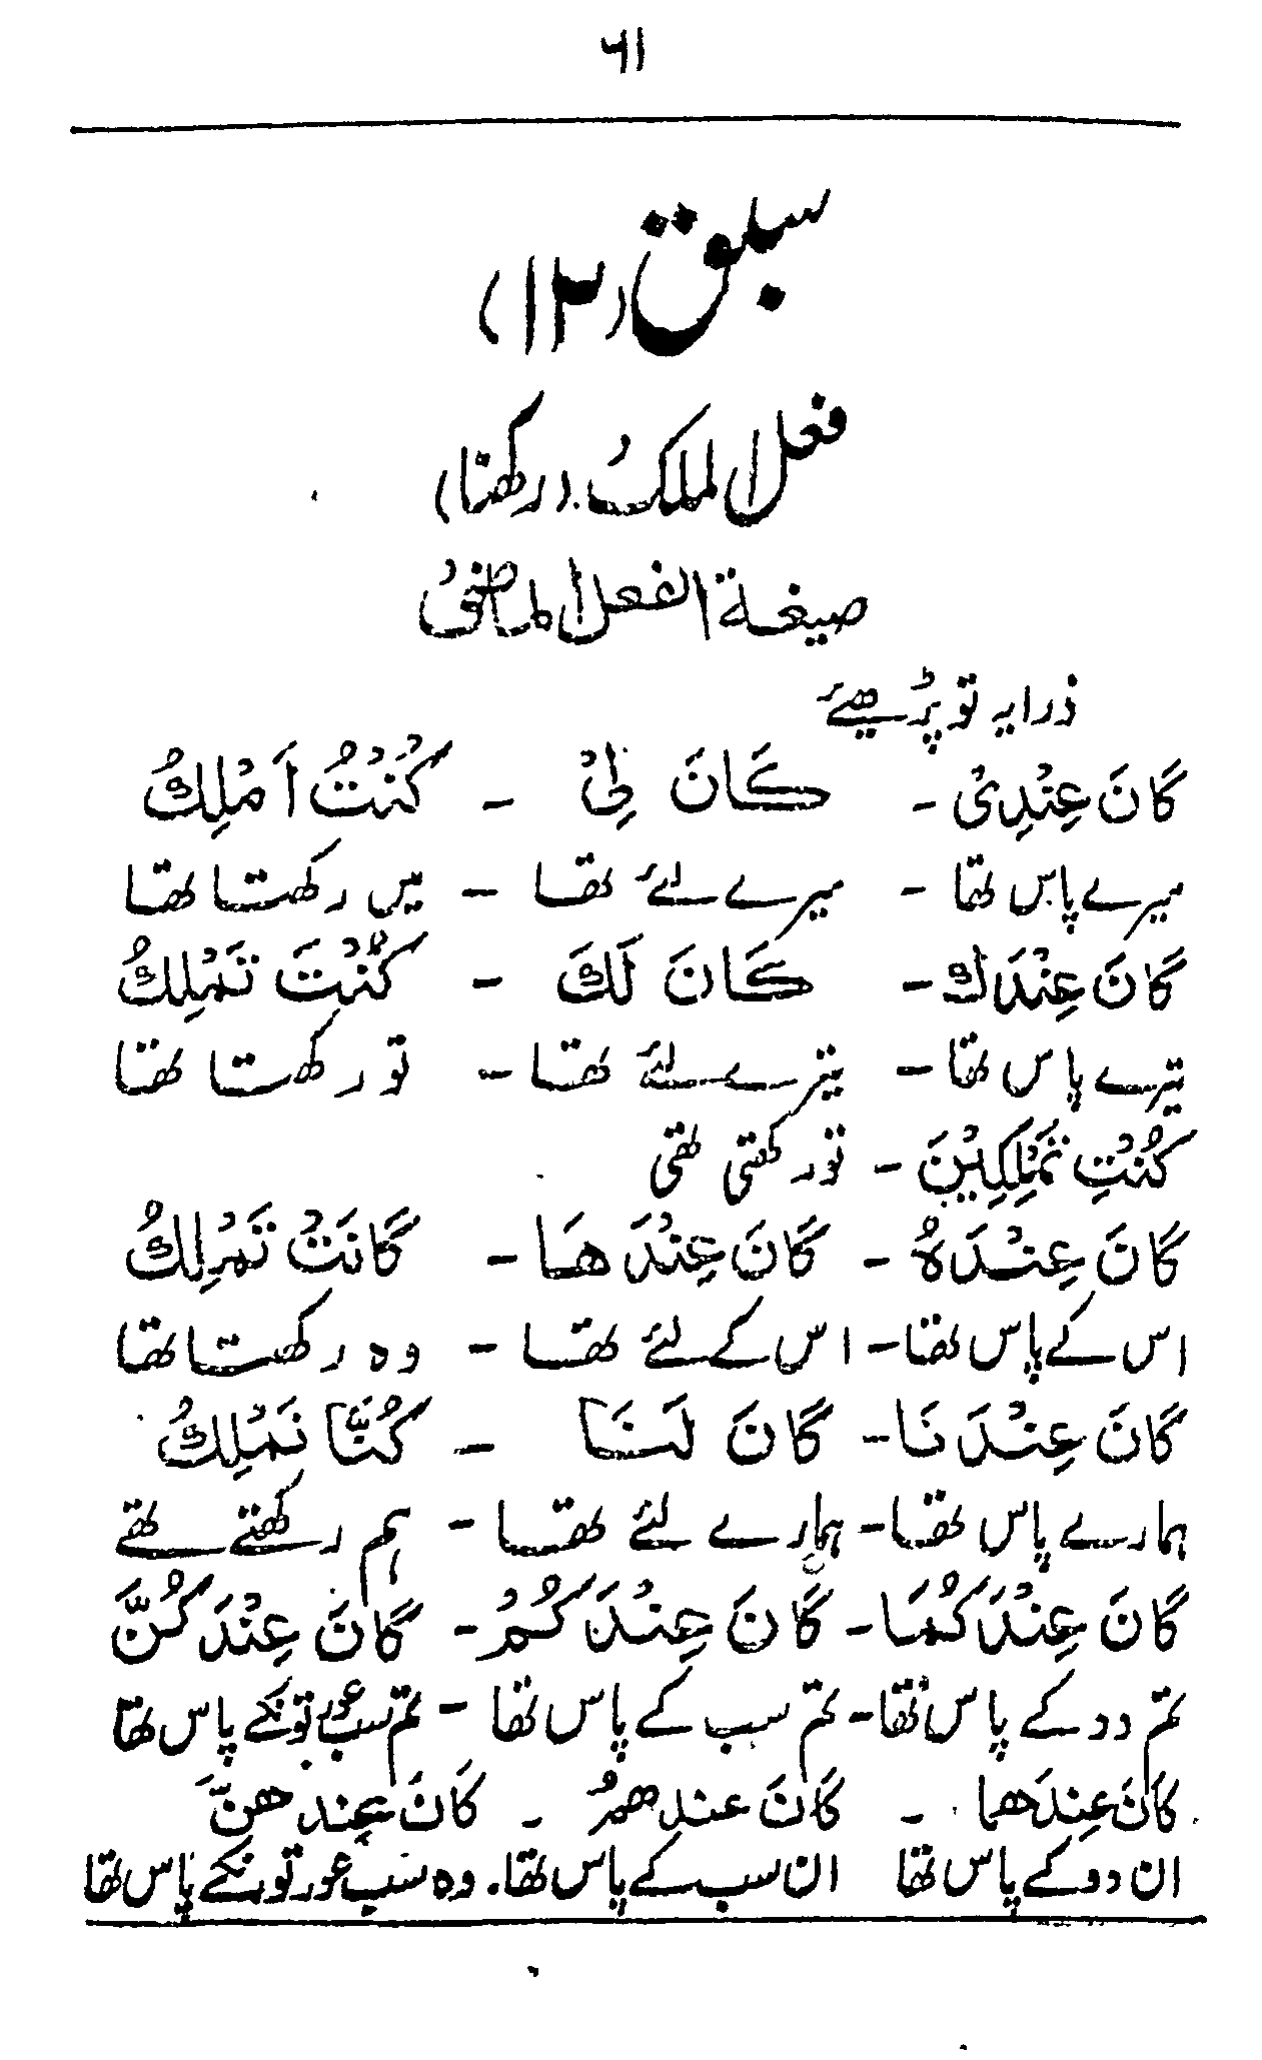 ۶۱
سبق (۱۲)
فعل الملکُ (رکھنا)
صیغة الفعل الماضیُ
ذرا یہ تو پڑھیئے
کَانَ عِنْدِیْ - کَانَ لِیْ - کُنْتُ اَمْلِكُ
میرے پاس تھا - میرے لئے تھا - میں رکھتا تھا
کَانَ عِنْدَكَ - کَانَ لَكَ - کُنْتَ تَمْلِكُ
تیرے پاس تھا - تیرے لئے تھا - تو رکھتا تھا
کُنْتِ تَمْلِکِیْنَ - تو رکھتی تھی
کَانَ عِنْدَہٗ - کَانَ عِنْدَ هَا - کَانَتْ تَمْلِكُ
اس کے پاس تھا - اس کے لئے تھا - وہ رکھتا تھا
کَانَ عِنْدَ نَا - کَانَ لَنَا - کُنَّا نَمْلِكُ
ہمارے پاس تھا - ہمارے لئے تھا - ہم رکھتے تھے
کَانَ عِنْدَ کُمَا - کَانَ عِنْدَ کُمْ - کَانَ عِنْدَ کُنَّ
تم دو کے پاس تھا - تم سب کے پاس تھا - تم سب عورتونکے پاس تھا
کَانَ عِندَ هما - کَانَ عند همْ - کَانَ عِند هنَّ
ان دو کے پاس تھا ان سب کے پاس تھا. وہ سب عورتونکے پاس تھا